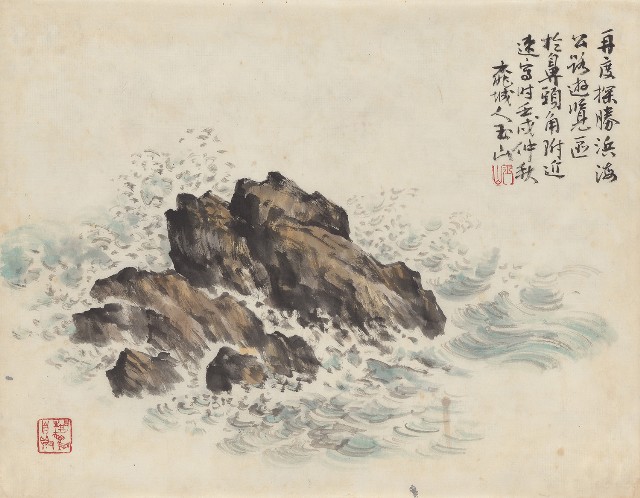 再度探勝浜海
公路遊覽區
於鼻頭角附近
速写时壬戌仲秋
桃城人玉山